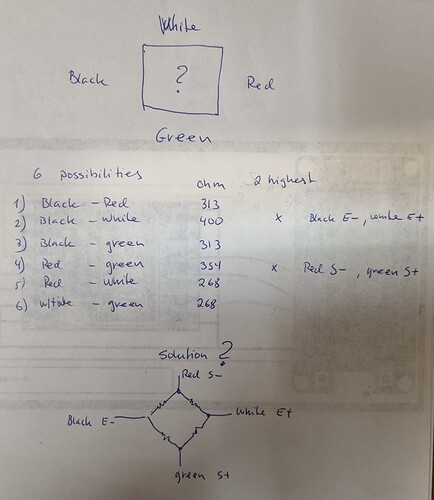 White
Black ? Red
Green
6 possibilities ohm 2 highest
1) Black - Red 313
2) Black - White 400 x Black E-, white E+
3) Black - green 313
4) Red - green 354 x Red S-, green S+
5) Red - white 268
6) White - green 268
Solution ?
Red S-
Black E- White E+
green S+